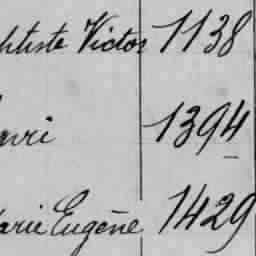 ptiste Victor 1138
enri 1394
arie Eugène 1429